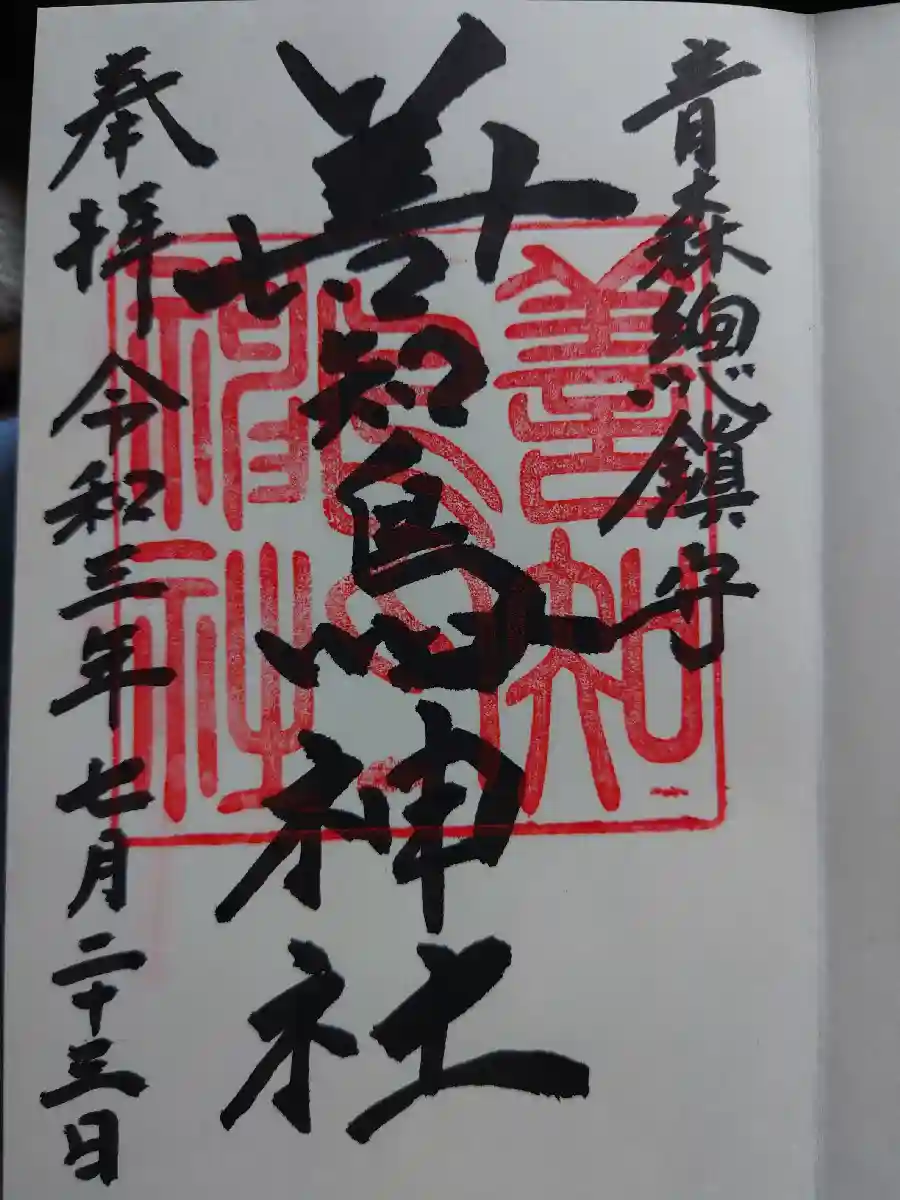 青森總鎮守
善知鳥神社
奉拝 令和三年七月二十三日
善知
鳥
神社